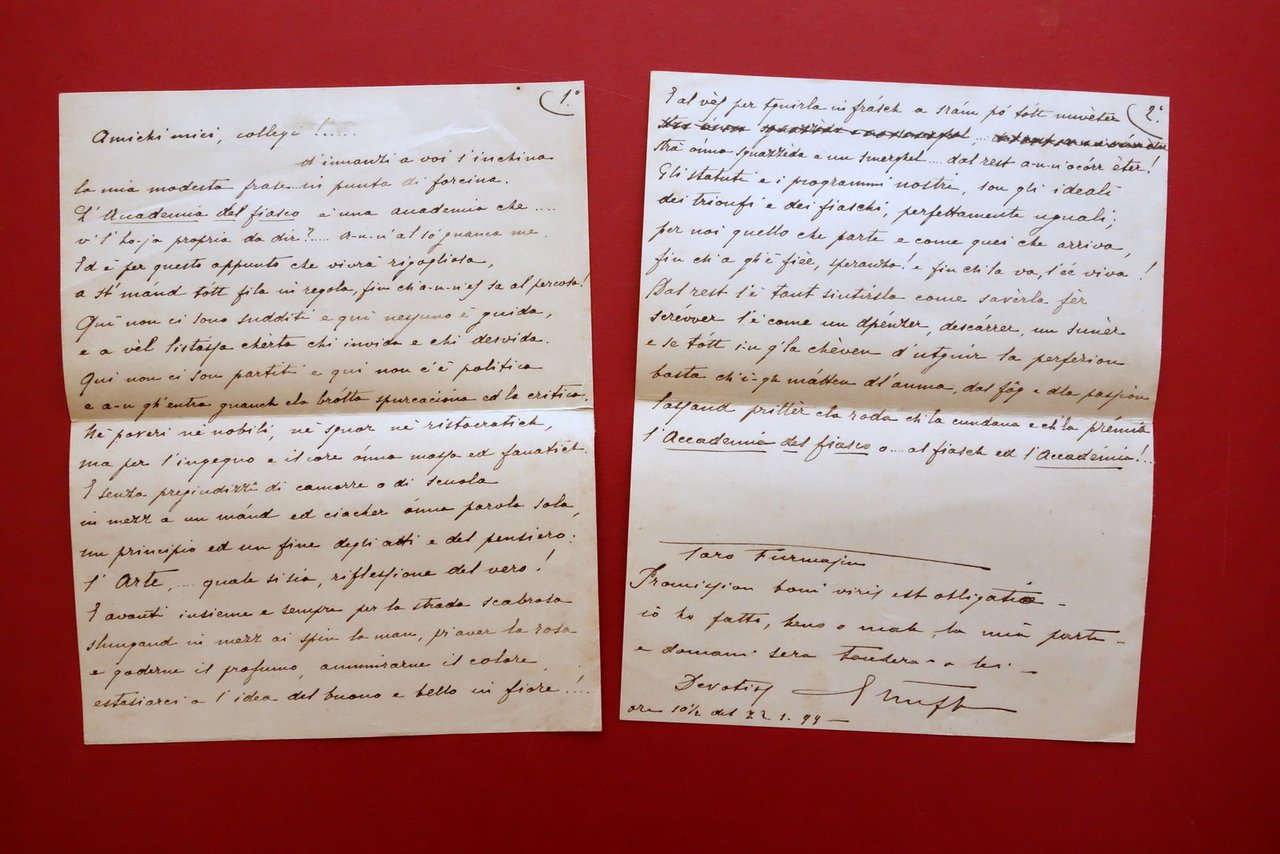 1.°
Amichi miei, collegi !......
d'innanzi a voi s'inchina
la mia modesta frase in punta di forcina.
L'Accademia del fiasco è una academia che ....
v'l'ho-ja propria da dir?..... a-n-n'al sò gnanca me.
Ed è per questo appunto che vivrà rigogliosa,
a st' mánd tótt fila in regola, fin ch'a-n-n'es sa al percosa!
Qui non ci sono sudditi e qui nessuno è guida,
e a vèl l'istassa chèrta chi invida e chi desvida.
Qui non ci son partiti e qui non c'è politica
e a-n gh'entra gnanch cla brótta spurcacióna ed la critica.
Nè poveri nè nobili, nè sgnor nè ristocratich,
ma per l'ingegno e il core ónna massa ed fanatich.
E senza pregiudizzi di camorre o di scuola
in mezz a un mánd ed ciacher ónna parola sola,
un principio ed un fine degli atti e del pensiero:
l'Arte, .... quale si sia, riflessione del vero!
E avanti insieme e sempre per la strada scabrosa
slungand in mezz ai spin la man, pr'aver la rosa
e goderne il profumo, ammirarne il colore,
estasiarci a l'idea del buono e bello in fiore!...
2.°
E al vèl per tgnirla in frásch a srám pó tótt
trà ónna sguazzèda e un smerghel.... dal rest a-n-n'ocórr èter!
Gli statuti e i programmi nostri, son gli ideali
dei trionfi e dei fiaschi, perfettamente uguali;
per noi quello che parte e come quei che arriva,
fin ch'a gh'è fièe, speranza! e fin ch'la va, l'è viva!
Dal rest l'è tant sintirsla come savèrla fèr
scrévver l'è come un dpénzer, descórrer, un sunèr
e se tótt i-n g'la chèven d'utgnir la perfezion
basta ch'i-gh mátten dl'anma, dal fóg e dla passion
lassand prillèr cla roda ch'la cundana e ch'la prémia
l'Accademia del fiasco o.... al fiasch ed l'Accadémia!...
Promission boni viris est obligatio
io ho fatto, bene o male, la mia parte
e domani sera a lei
Devotiss
ore 10½ del 22.1.99